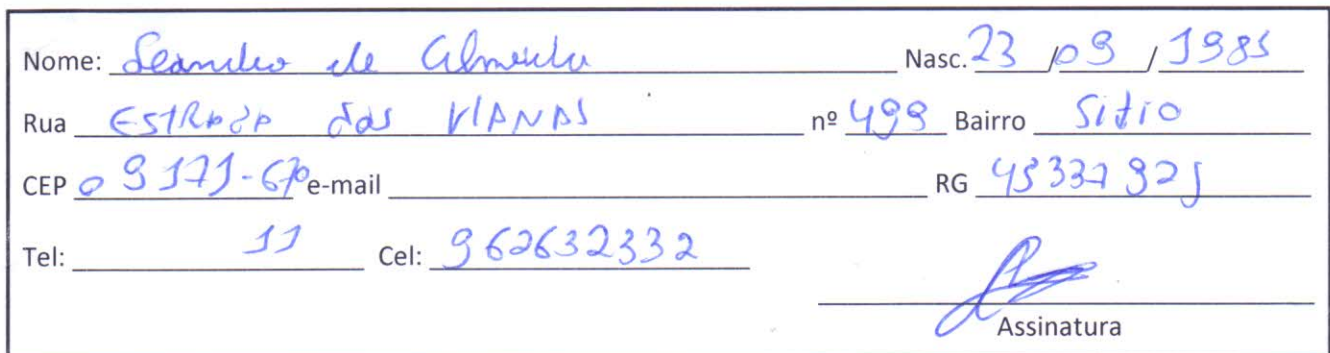 Nome: Leandro de Almeida Nasc. 23 / 09 / 1985
Rua ESTRADA das VIANAS nº 499 Bairro Sitio
CEP 09171-670 e-mail RG
Tel: 11 Cel: 962632332
Assinatura